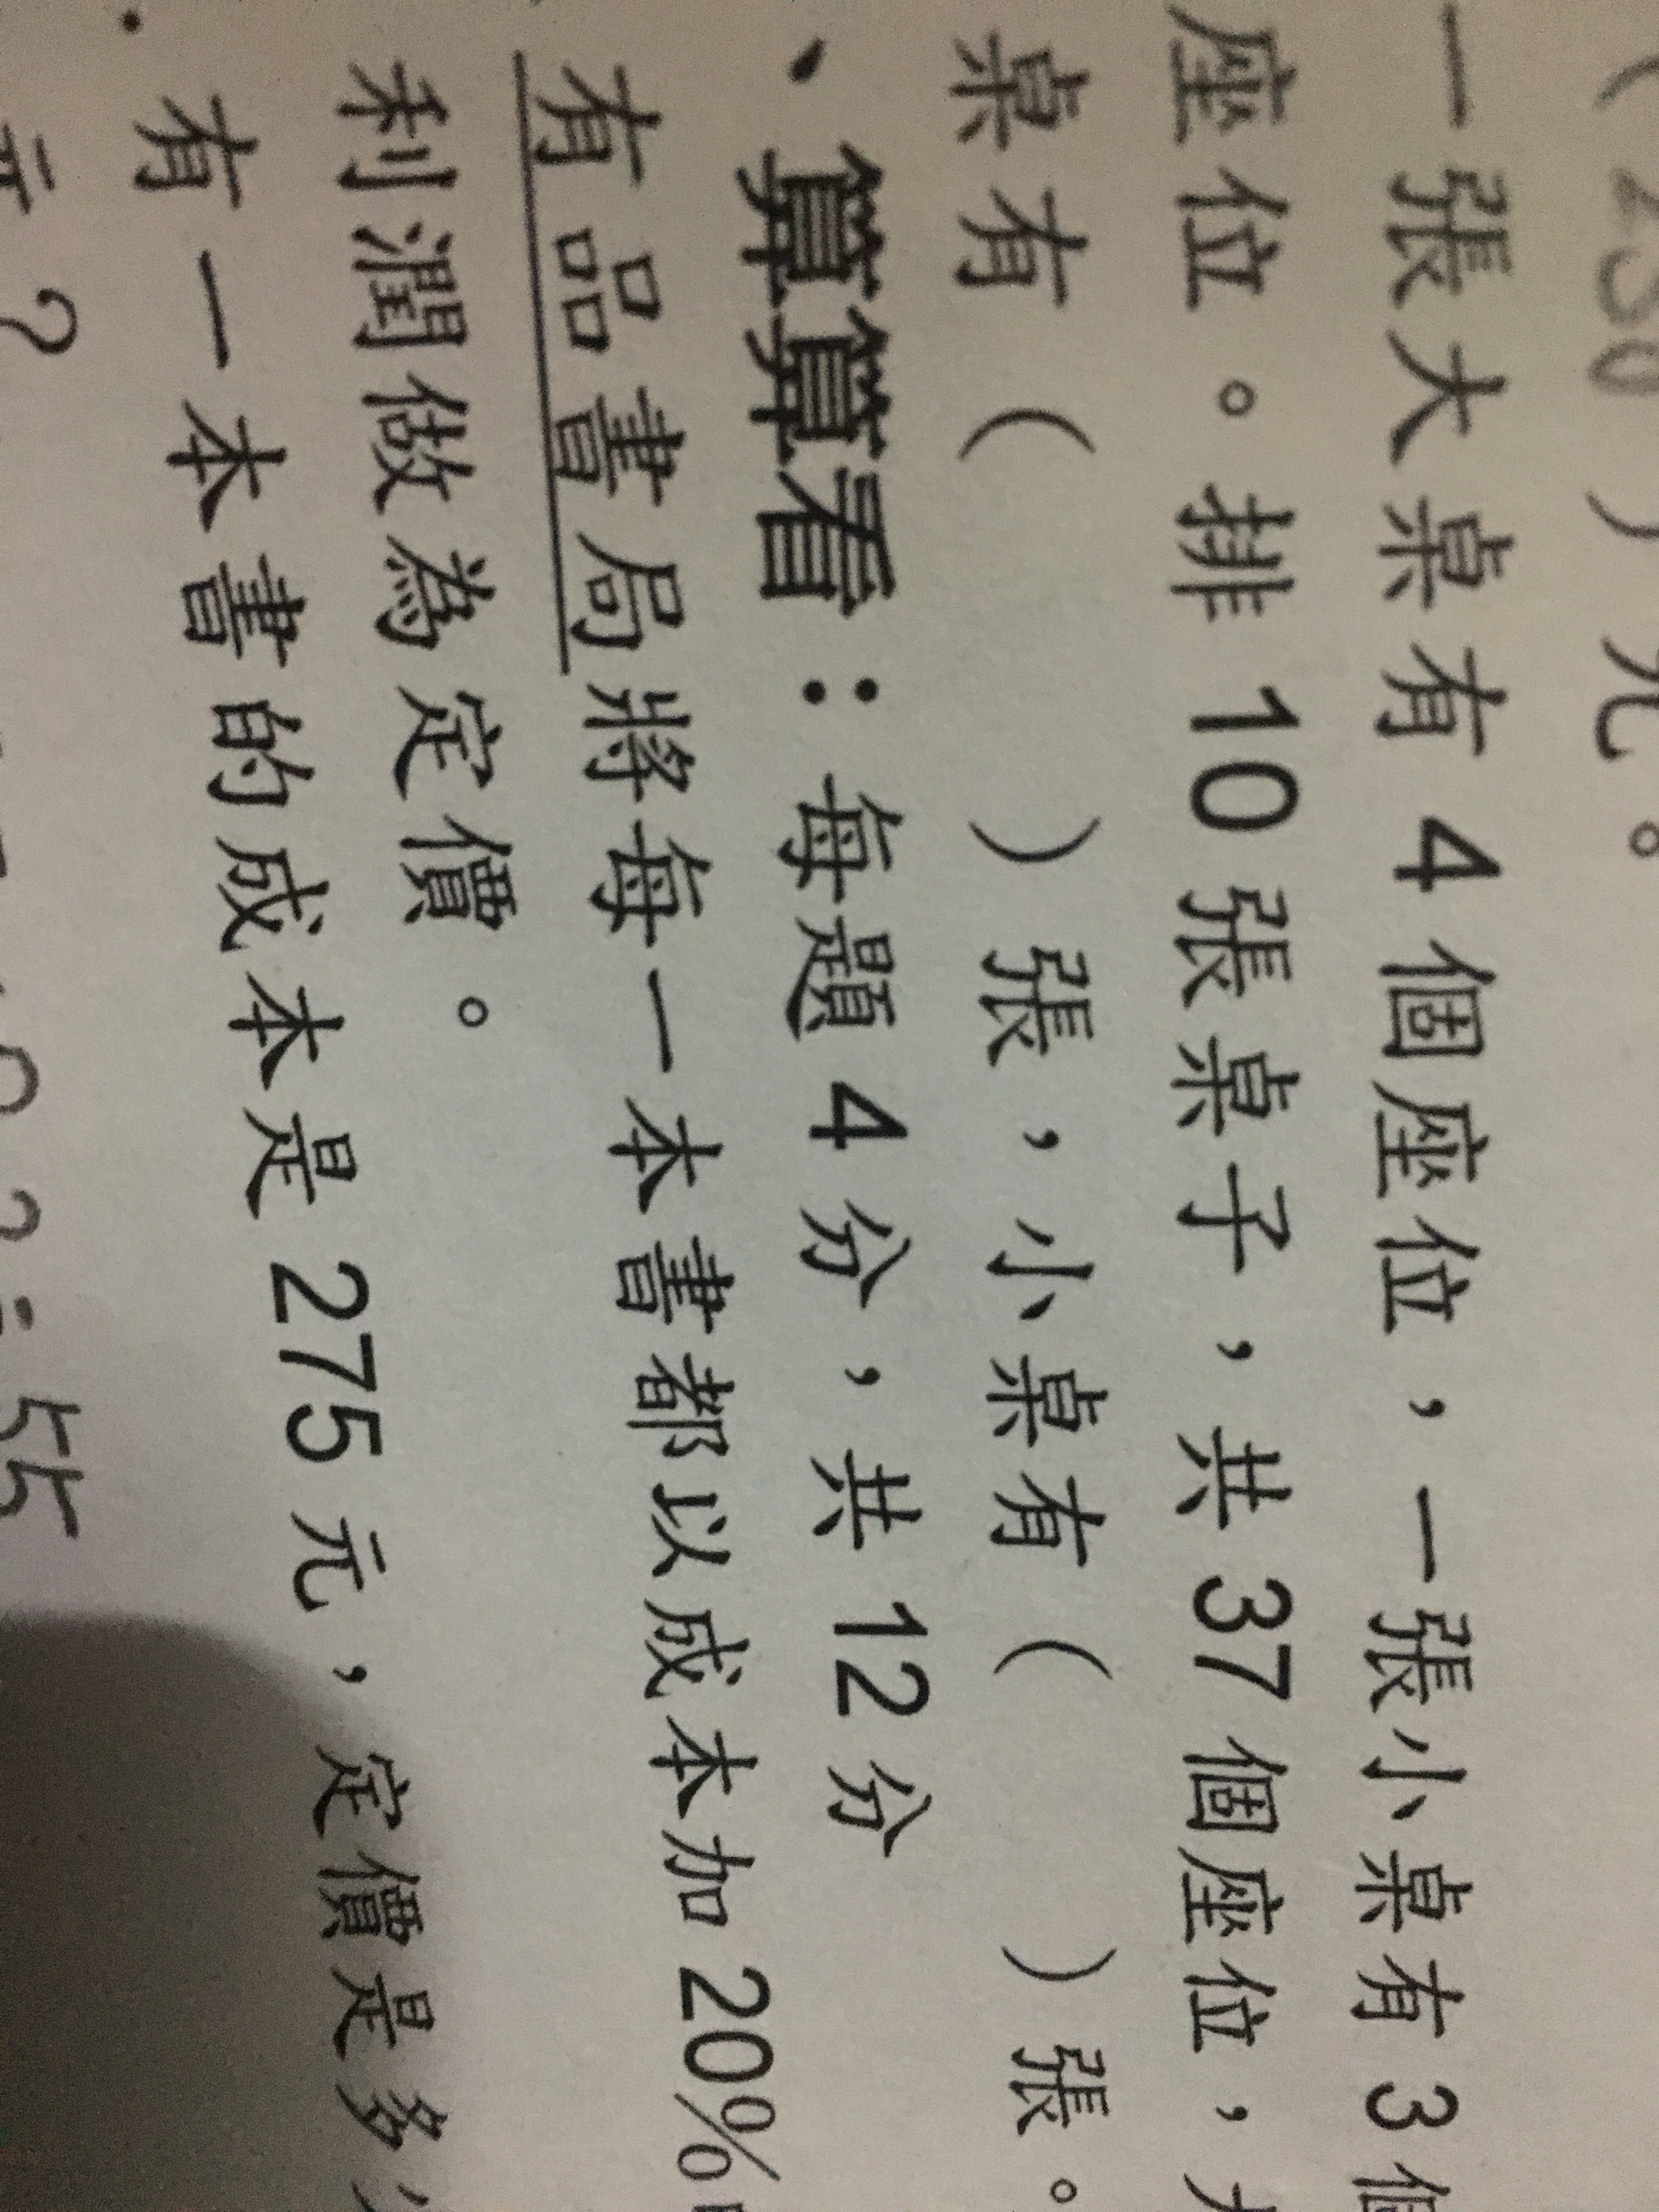 (230) 元。
一張大桌有 4 個座位，一張小桌有 3 個
座位。排 10 張桌子，共 37 個座位，大
桌有（　　）張，小桌有（　　）張。
、算算看：每題 4 分，共 12 分
有品書局將每一本書都以成本加 20%
利潤做為定價。
有一本書的成本是 275 元，定價是多少
元？